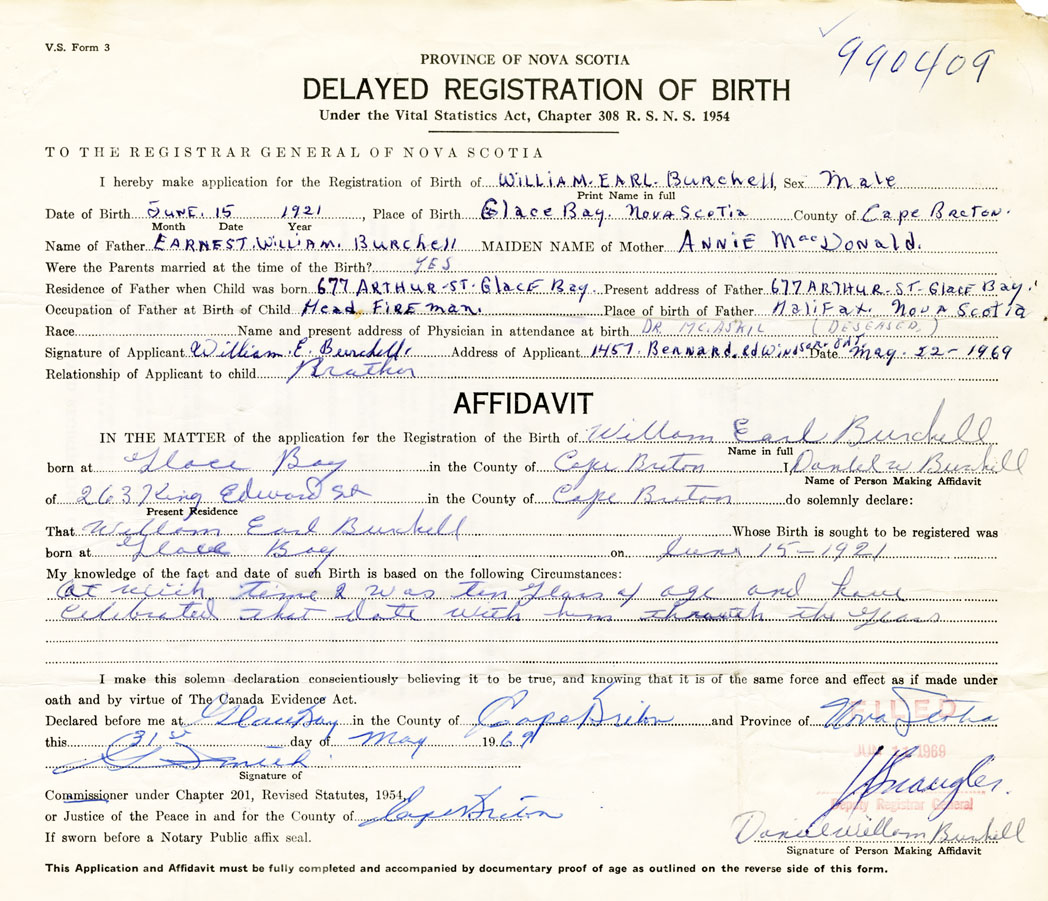 V.S. Form 3
990409
PROVINCE OF NOVA SCOTIA
DELAYED REGISTRATION OF BIRTH
Under the Vital Statistics Act, Chapter 308 R. S. N. S. 1954
TO THE REGISTRAR GENERAL OF NOVA SCOTIA
I hereby make application for the Registration of Birth of WILLIAM. EARL. Burchell, Sex Male
Print Name in full
Date of Birth JUNE. 15 1921, Place of Birth Glace Bay. NOVA SCOTIA County of Cape BreTON.
Month Date Year
Name of Father EARNEST. WILLIAM. Burchell MAIDEN NAME of Mother ANNIE MacDonald.
Were the Parents married at the time of the Birth? YES
Residence of Father when Child was born 677 ARTHUR-ST. GlacE Bay. Present address of Father 677 ARTHUR-ST. GlacE Bay.
Occupation of Father at Birth of Child Head FIREman. Place of birth of Father HaliFax. NovA ScoTia
Race Name and present address of Physician in attendance at birth DR MC.ASKIL (DESEASED.)
Signature of Applicant William. E. Burchell. Address of Applicant 1457. BERNARD. Rd WINdsor. ONT. Date May. 22-1969
Relationship of Applicant to child Brother
AFFIDAVIT
IN THE MATTER of the application for the Registration of the Birth of William Earl Burchell
Name in full
born at Glace Bay in the County of Cape Breton I Daniel W Burchell
Name of Person Making Affidavit
of 263 King Edward St in the County of Cape Breton do solemnly declare:
Present Residence
That William Earl Burchell Whose Birth is sought to be registered was
born at Glace Bay on June 15-1921
My knowledge of the fact and date of such Birth is based on the following Circumstances:
At wich time I was ten years of age and have
celebrated that date with him through the years
I make this solemn declaration conscientiously believing it to be true, and knowing that it is of the same force and effect as if made under
oath and by virtue of The Canada Evidence Act.
Declared before me at Glace Bay in the County of Cape Breton and Province of Nova Scotia
FILED
this 31st day of May 1969
1969
Signature of
Commissioner under Chapter 201, Revised Statutes, 1954,
Deputy Registrar General
or Justice of the Peace in and for the County of Cape Breton
If sworn before a Notary Public affix seal.
Daniel William Burchell
Signature of Person Making Affidavit
This Application and Affidavit must be fully completed and accompanied by documentary proof of age as outlined on the reverse side of this form.